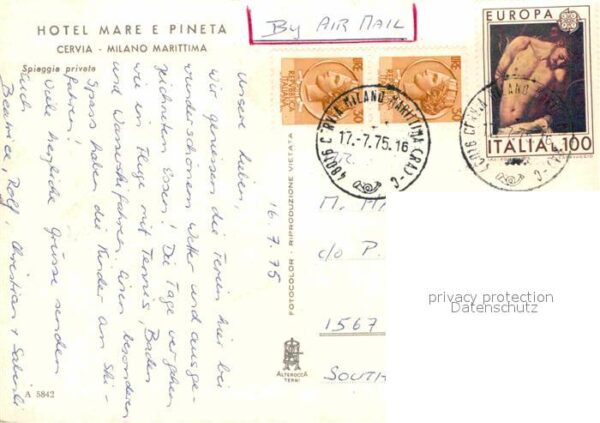 HOTEL MARE E PINETA
CERVIA - MILANO MARITTIMA
Spiaggia privata
By AIR MAIL
EUROPA
ITALIA L.100
48016 CERVIA MILANO MARITTIMA (RA) - C
17.-7.75.16
48016 CERVIA
17.-7
16.7.75
Unsere Lieben,
wir geniessen die Ferien hier bei
wunderschönem Wetter und ausge-
zeichnetem Essen! Die Tage vergehen
wie im Fluge mit Tennis, Baden
und Wasserskifahren. Einen besonderen
Spass haben die Kinder am Ski-
fahren!
Viele herzliche Grüsse senden
Euch
Beatrice, Rolf, Christian +
FOTOCOLOR - RIPRODUZIONE VIETATA
M.
c/o P.
1567
SOUTH
ALTEROCCA
TERNI
A 5842
privacy protection
Datenschutz